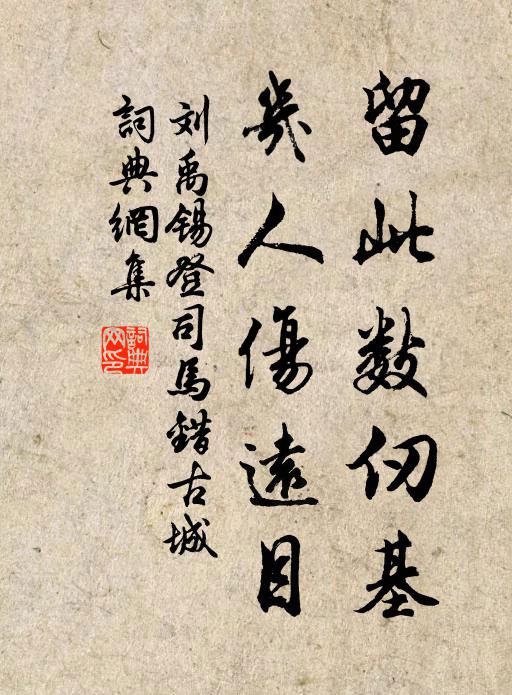 留此数仞基
幾人傷遠目
刘禹锡登司馬錯古城
詞典網集
詞典網印